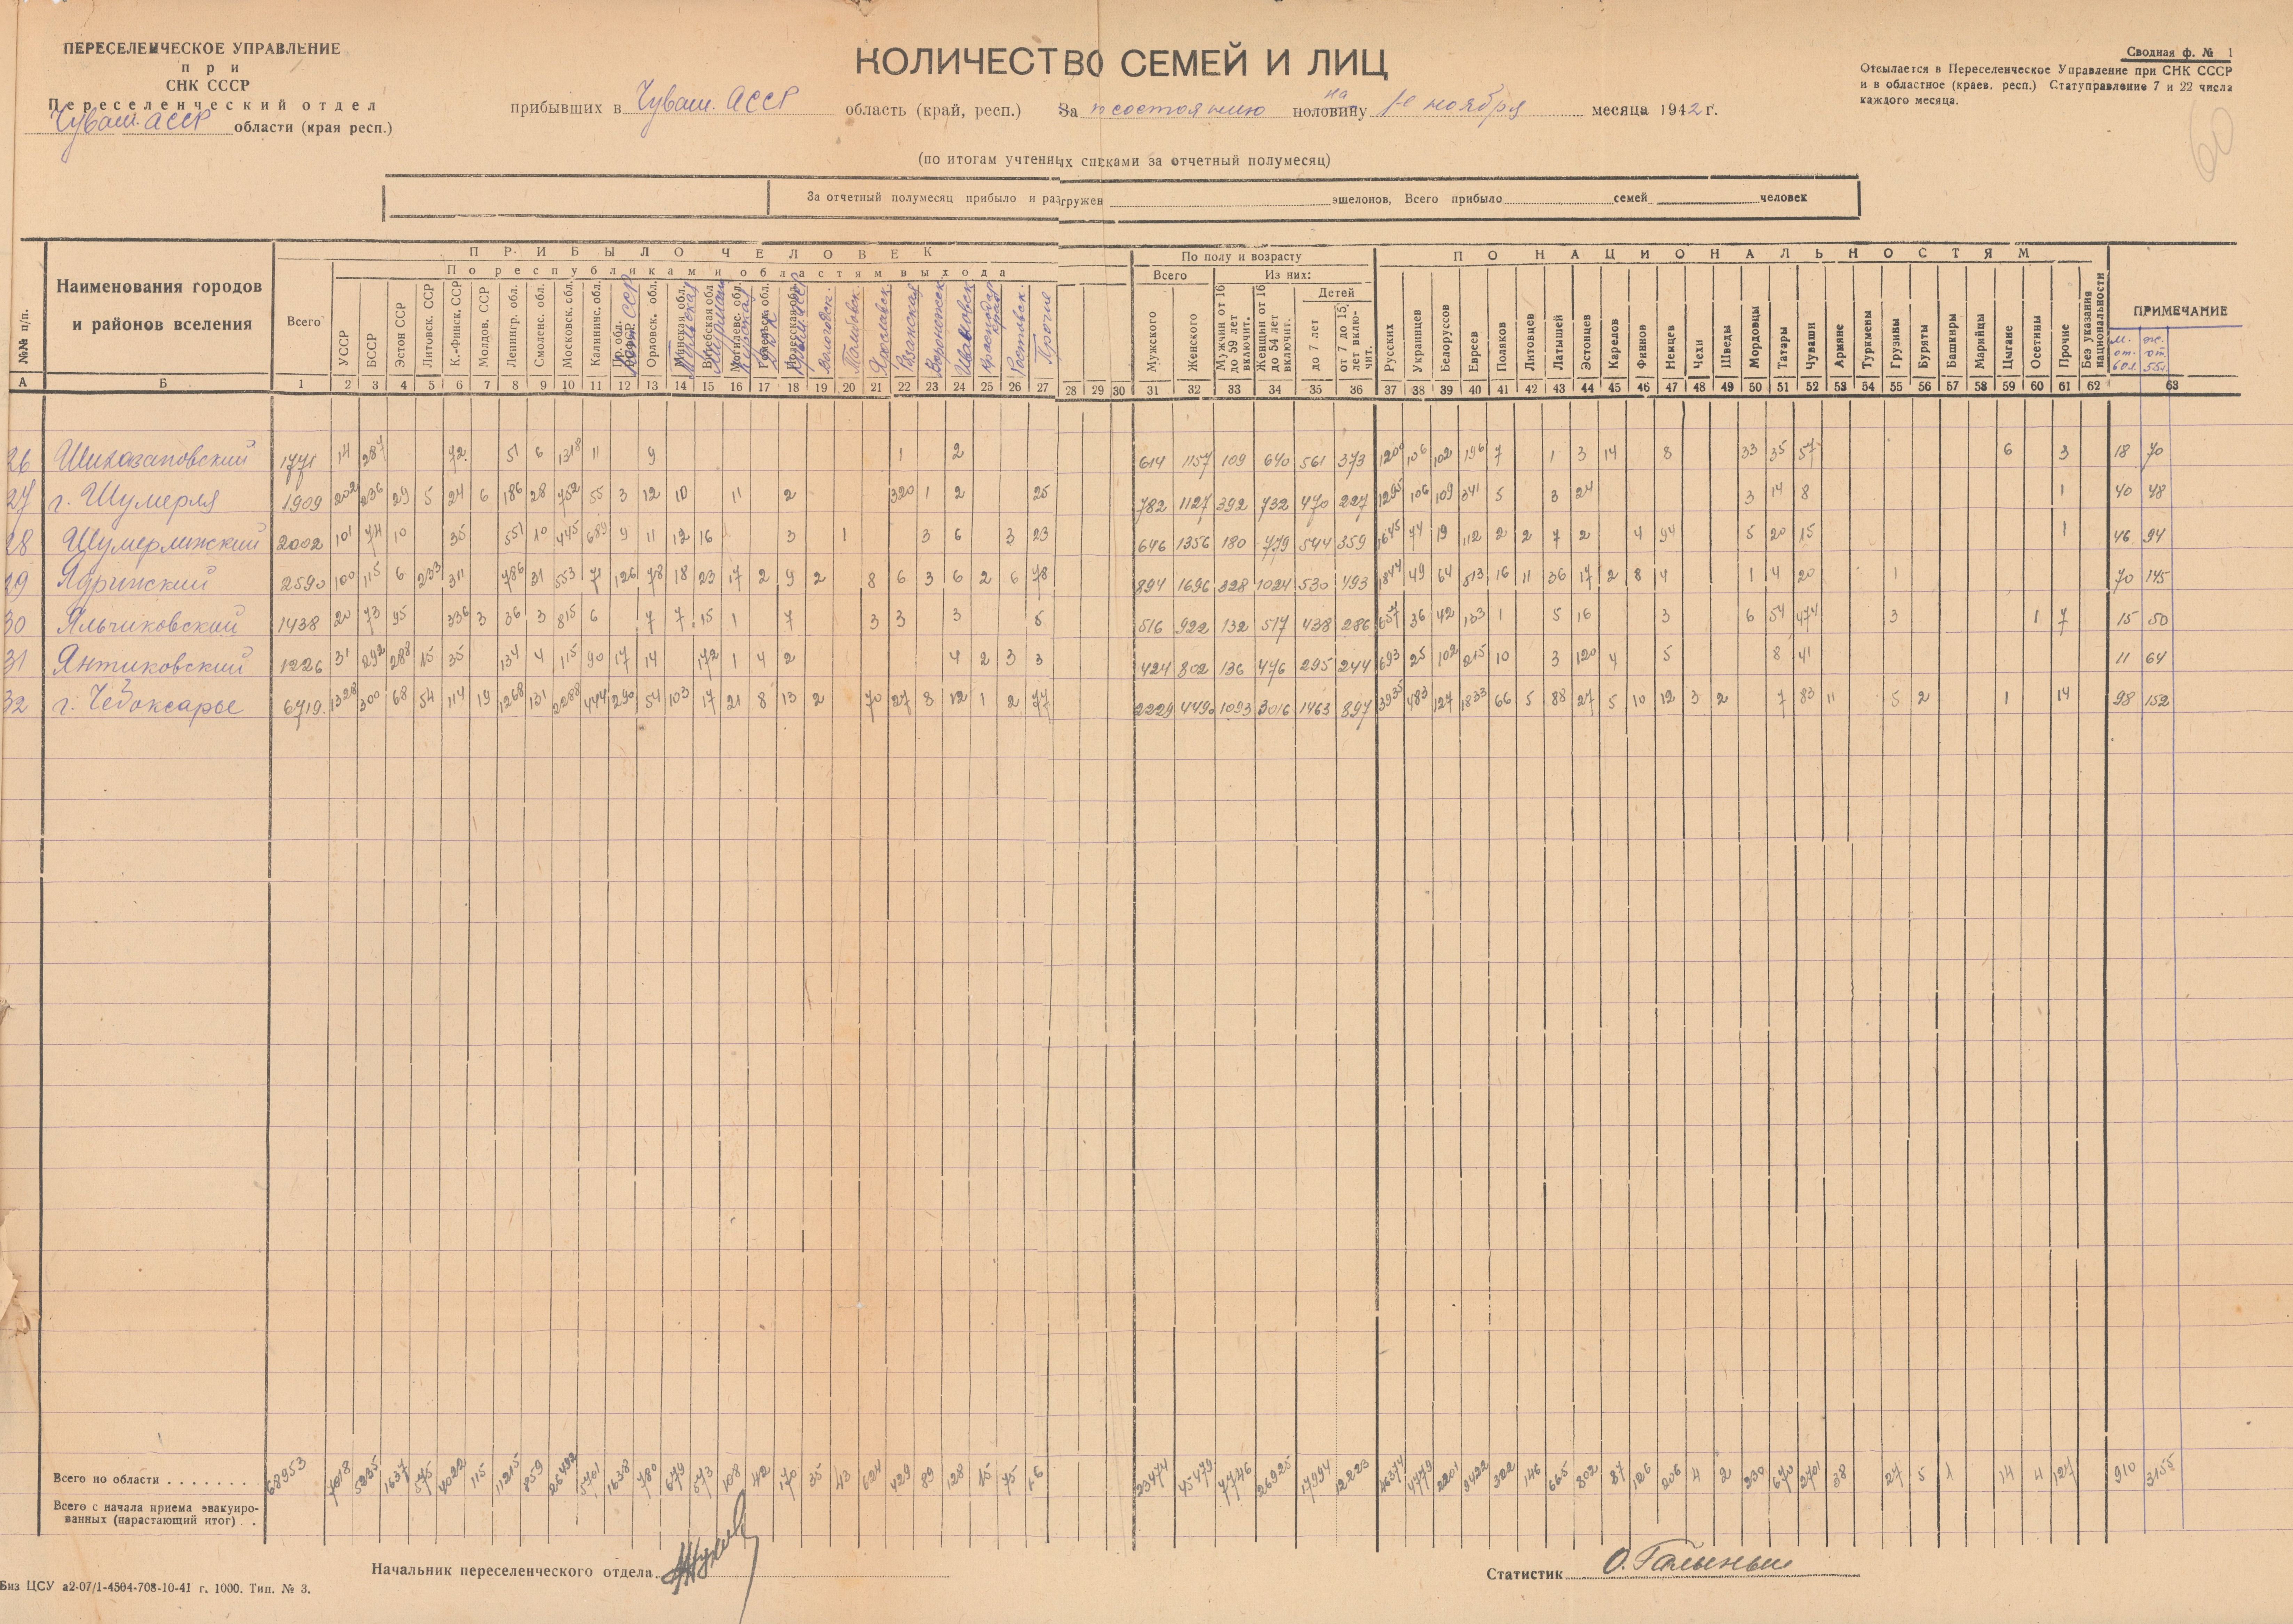 ПЕРЕСЕЛЕНЧЕСКОЕ УПРАВЛЕНИЕ
при
СНК СССР
Переселенческий отдел
Чуваш. АССР области (края респ.)
КОЛИЧЕСТВО СЕМЕЙ И ЛИЦ
прибывших в Чуваш. АССР область (край, респ.) За по состоянию на половину 1-е ноября месяца 1942 г.
(по итогам учтенных списками за отчетный полумесяц)
Сводная ф. № 1
Отсылается в Переселенческое Управление при СНК СССР
и в областное (краев. респ.) Статуправление 7 и 22 числа
каждого месяца.
60
За отчетный полумесяц прибыло и разгружен эшелонов, Всего прибыло семей человек
№№ п/п. Наименования городов и районов вселения
ПРИБЫЛО ЧЕЛОВЕК
По республикам и областям выхода
Всего УССР БССР Эстон ССР Литовск. ССР К.-Финск. ССР Молдов. ССР Ленингр. обл. Смоленс. обл. Московск. обл. Калининс. обл. Орловск. обл. Мурманск Курская Вологодск. Рязанская Воронежск Ивановск Краснодар Ростовск. Прочие
По полу и возрасту
Всего Из них:
Детей
Мужского Женского Мужчин от 16 до 59 лет включит. Женщин от 16 до 54 лет включит. до 7 лет от 7 до 15 лет включит.
ПО НАЦИОНАЛЬНОСТЯМ
Русских Украинцев Белоруссов Евреев Поляков Литовцев Латышей Эстонцев Карелов Финнов Немцев Чехи Шведы Мордовцы Татары Чуваши Армяне Туркмены Грузины Буряты Башкиры Марийцы Цыгане Осетины Прочие Без указания национальности
ПРИМЕЧАНИЕ
м. от. 60 л. ж. от 55 л.
А Б 1 2 3 4 5 6 7 8 9 10 11 12 13 14 15 16 17 18 19 20 21 22 23 24 25 26 27 28 29 30 31 32 33 34 35 36 37 38 39 40 41 42 43 44 45 46 47 48 49 50 51 52 53 54 55 56 57 58 59 60 61 62 63
26 Шихазановский 1771 14 287 72 51 6 1318 11 9 1 2 614 1157 109 640 561 373 1200 106 102 196 7 1 3 14 8 33 35 57 6 3 18 70
27 г. Шумерля 1909 202 236 29 5 24 6 186 28 752 55 3 12 10 11 2 320 1 2 25 782 1127 392 732 470 227 1295 106 109 341 5 3 24 3 14 8 1 40 48
28 Шумерлинский 2002 101 74 10 35 551 10 445 689 9 11 12 16 3 1 3 6 3 23 646 1356 180 779 544 359 1645 74 19 112 2 2 7 2 4 94 5 20 15 1 46 94
29 Ядринский 2590 100 115 6 233 311 786 31 553 71 126 78 18 23 17 2 9 2 8 6 3 6 2 6 78 894 1696 328 1024 530 493 1844 49 64 513 16 11 36 17 2 8 4 1 4 20 1 70 145
30 Яльчиковский 1438 20 73 95 336 3 36 3 815 6 7 7 15 1 7 3 3 3 5 516 922 132 517 438 286 657 36 42 133 1 5 16 3 6 54 474 3 1 7 15 50
31 Янтиковский 1226 31 292 288 15 35 134 4 115 90 17 14 172 1 4 2 4 2 3 3 424 802 136 476 295 244 693 25 102 215 10 3 120 4 5 8 41 11 64
32 г. Чебоксары 6719 1328 300 68 54 114 19 1268 131 2288 444 290 54 103 17 21 8 13 2 70 27 8 12 1 2 77 2229 4490 1093 3016 1463 897 3935 483 127 1833 66 5 88 27 5 10 12 3 2 7 83 11 5 2 1 14 98 152
Всего по области 68953 5235 1637 575 4022 115 11215 26492 5701 1638 780 679 573 108 42 170 35 43 624 429 89 128 15 75 23474 45479 7746 26925 17994 12223 46374 4779 2201 9422 322 146 665 802 87 126 206 4 2 230 670 2701 38 27 5 1 14 4 127 910 3155
Всего с начала приема эвакуиро-
ванных (нарастающий итог)
Начальник переселенческого отдела
Статистик
Биз ЦСУ а2-07/1-4504-708-10-41 г. 1000. Тип. № 3.